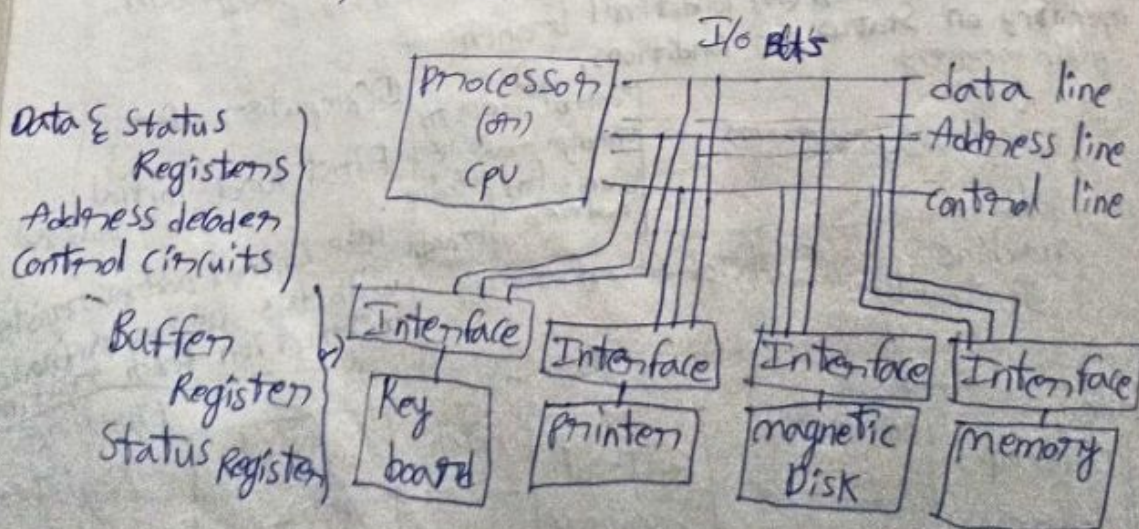 I/O
Processor
(or)
CPU
data line
Address line
control line
Data & Status
Registers
Address decoder
Control circuits
Buffer
Register
Status Register
Interface
Interface
Interface
Interface
Key
board
printer
magnetic
Disk
memory